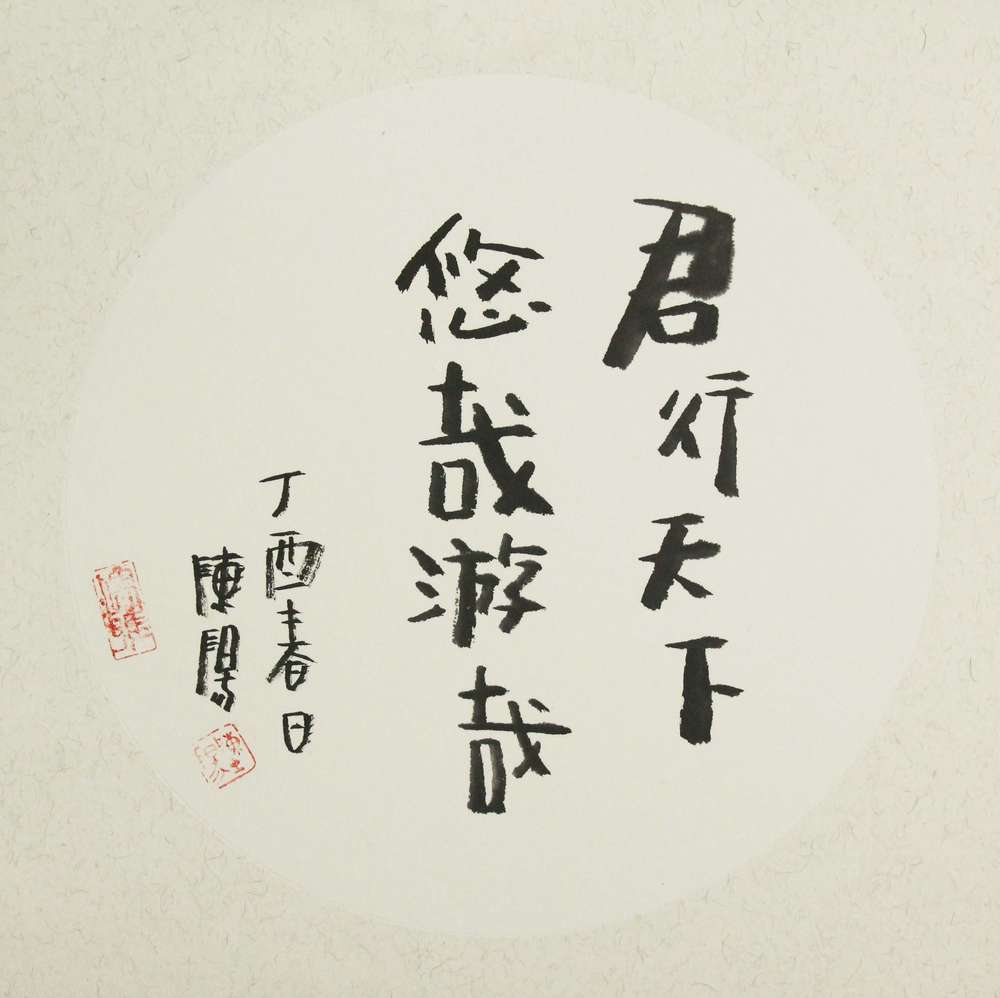 君行天下
悠哉游哉
丁酉春日
陳